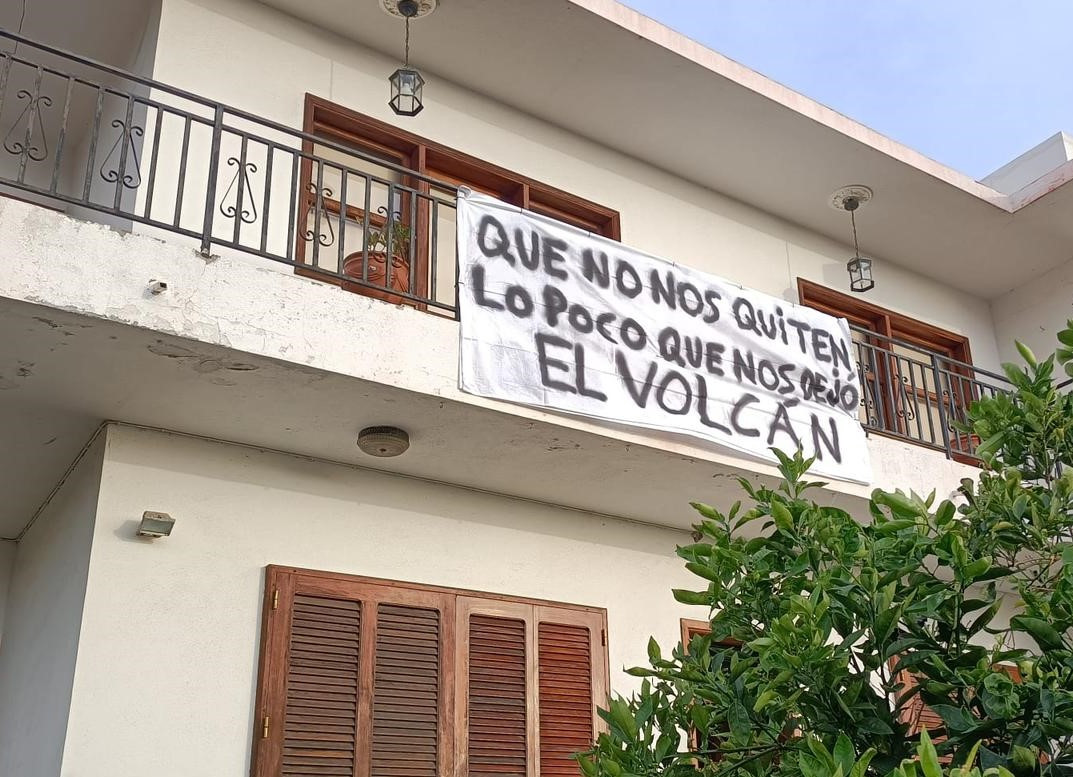 QUE NO NOS QUiTEN,
LO POCO QUE NOS DEJÓ
EL VOLCÁN